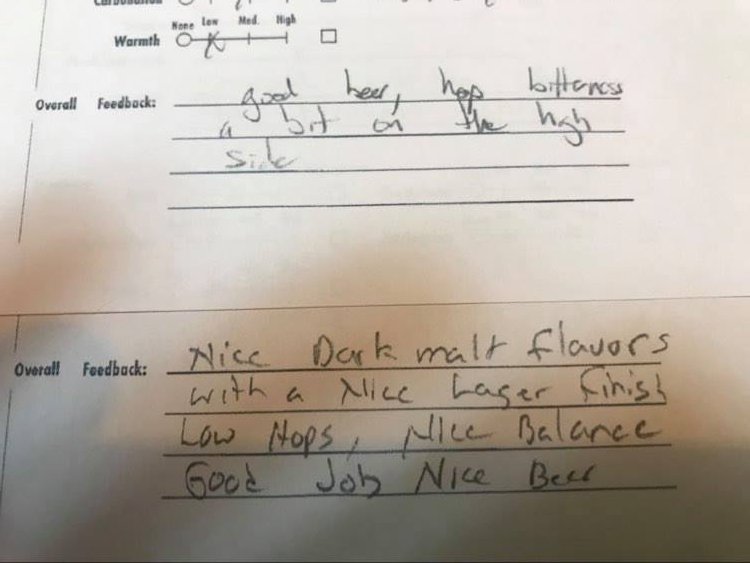 Carbonation
None Low Med. High
Warmth
Overall Feedback: good beer, hop bitterness
a bit on the high
side
Overall Feedback: Nice Dark malt flavors
with a Nice Lager Finish
Low Hops, Nice Balance
Good Job Nice Beer